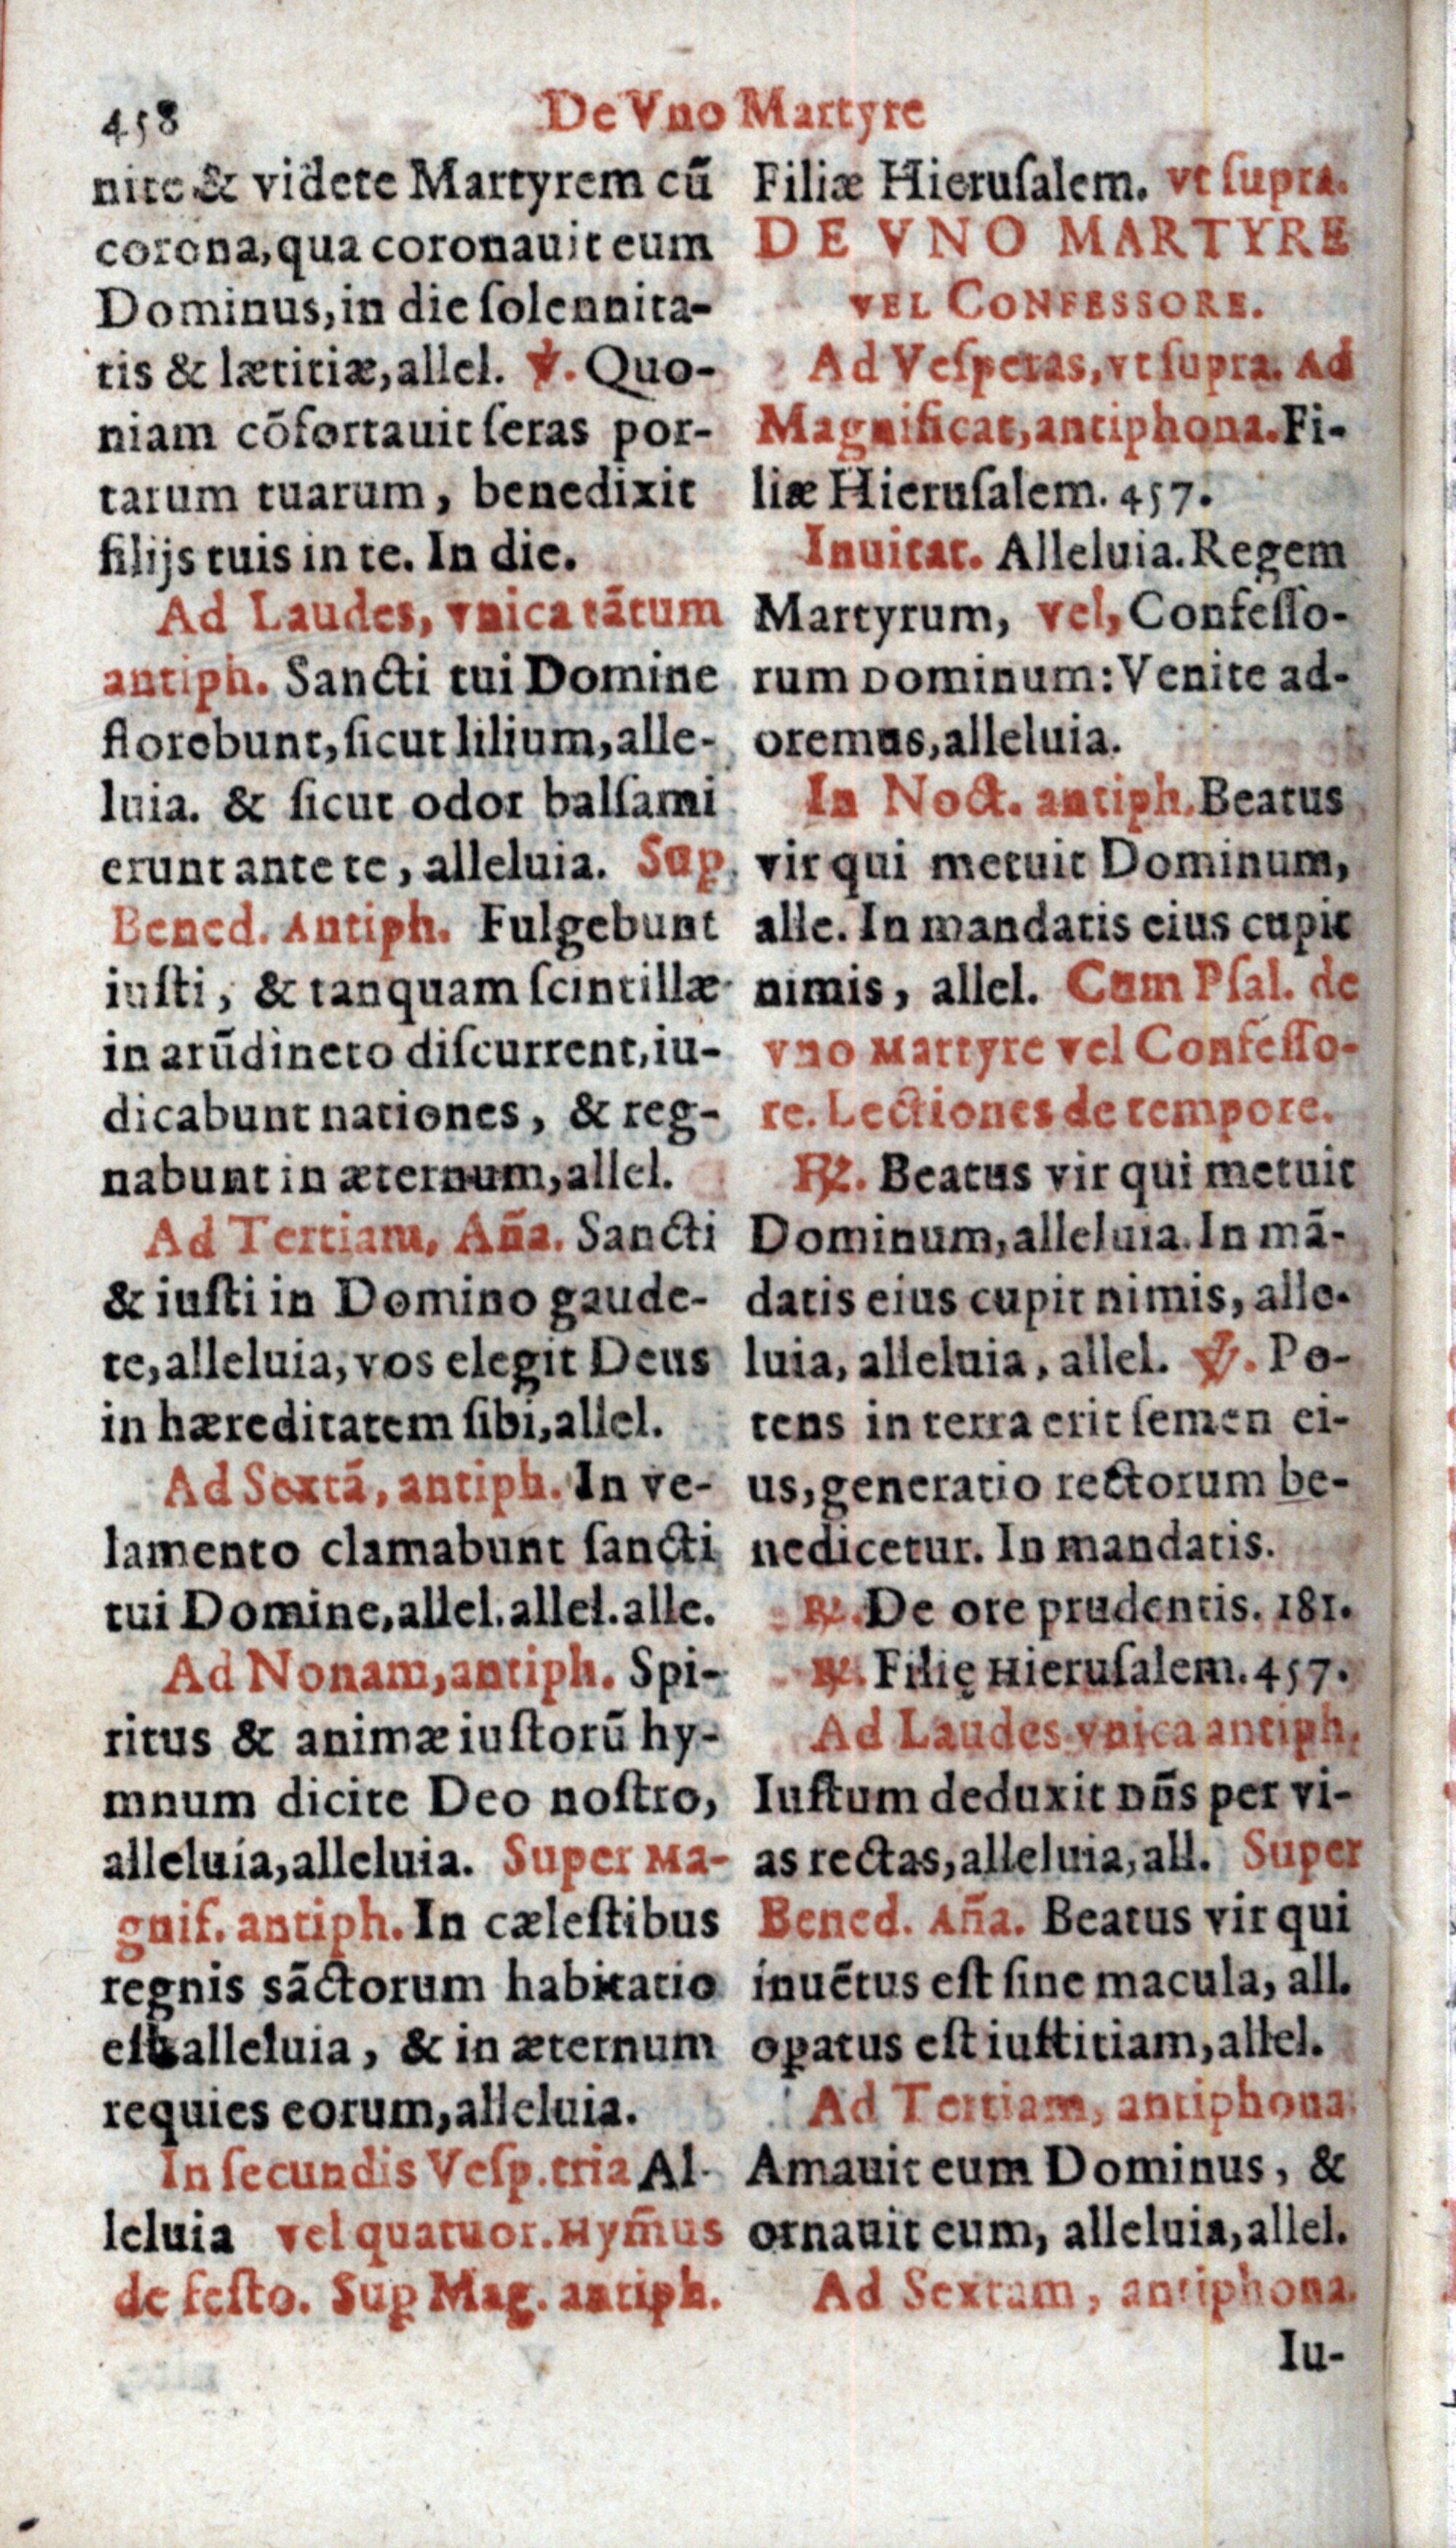 458
De Vno Martyre
nite & videte Martyrem cū
corona, qua coronauit eum
Dominus, in die ſolennita-
tis & lætitiæ, allel. ℣. Quo-
niam cōfortauit ſeras por-
tarum tuarum, benedixit
filijs tuis in te. In die.
Ad Laudes, vnica tātum
antiph. Sancti tui Domine
florebunt, ſicut lilium, alle-
luia. & ſicut odor balſami
erunt ante te, alleluia. Suꝑ
Bened. Antiph. Fulgebunt
iuſti, & tanquam ſcintillæ
in arūdineto diſcurrent, iu-
dicabunt nationes, & reg-
nabunt in æternum, allel.
Ad Tertiam, Aña. Sancti
& iuſti in Domino gaude-
te, alleluia, vos elegit Deus
in hæreditatem ſibi, allel.
Ad Sextā, antiph. In ve-
lamento clamabunt ſancti
tui Domine, allel. allel. alle.
Ad Nonam, antiph. Spi-
ritus & animæ iuſtorū hy-
mnum dicite Deo noſtro,
alleluia, alleluia. Super Ma-
gnif. antiph. In cæleſtibus
regnis sāctorum habitatio
eſt alleluia, & in æternum
requies eorum, alleluia.
In ſecundis Veſp. tria Al-
leluia vel quatuor. Hym̃us
de feſto. Suꝑ Mag. antiph.
Filiæ Hieruſalem. vt ſupra.
DE VNO MARTYRE
VEL CONFESSORE.
Ad Veſperas, vt ſupra. Ad
Magnificat, antiphona. Fi-
liæ Hieruſalem. 457.
Inuitat. Alleluia. Regem
Martyrum, vel, Confeſſo-
rum Dominum: Venite ad-
oremus, alleluia.
In Noct. antiph. Beatus
vir qui metuit Dominum,
alle. In mandatis eius cupit
nimis, allel. Cum Pſal. de
vno Martyre vel Confeſſo-
re. Lectiones de tempore.
℟. Beatus vir qui metuit
Dominum, alleluia. In mā-
datis eius cupit nimis, alle-
luia, alleluia, allel. ℣. Po-
tens in terra erit ſemen ei-
us, generatio rectorum be-
nedicetur. In mandatis.
℟. De ore prudentis. 181.
℟. Filię Hieruſalem. 457.
Ad Laudes vnica antiph.
Iuſtum deduxit Dñs per vi-
as rectas, alleluia, all. Super
Bened. Aña. Beatus vir qui
inuētus eſt ſine macula, all.
oꝑatus eſt iuſtitiam, allel.
Ad Tertiam, antiphona.
Amauit eum Dominus, &
ornauit eum, alleluia, allel.
Ad Sextam, antiphona.
Iu-